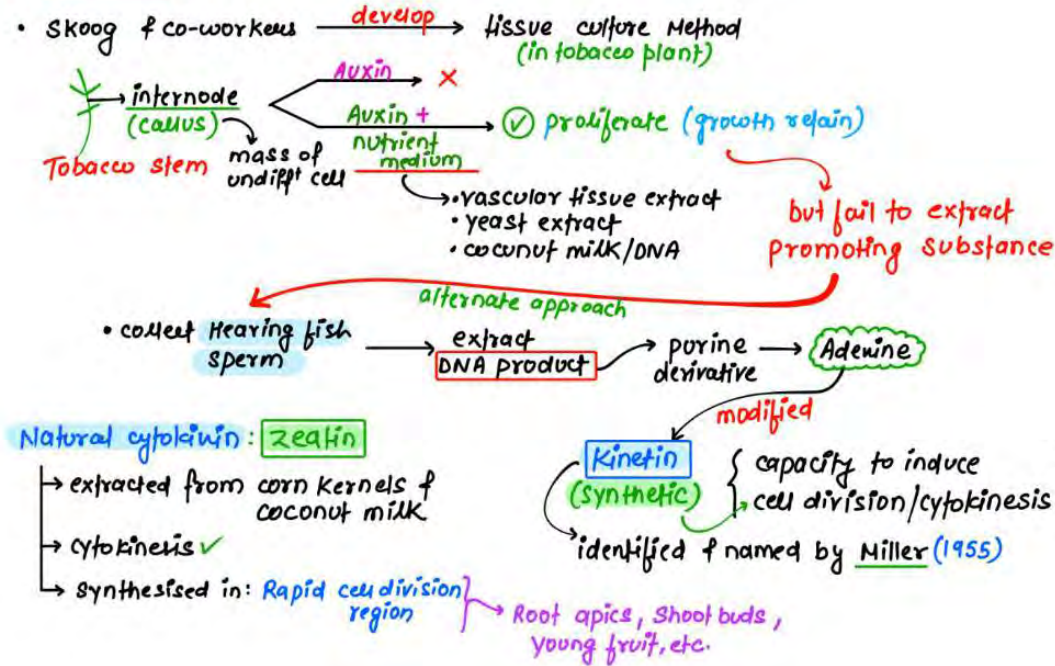 • Skoog & co-workers develop tissue culture Method
(in tobacco plant)
internode
(callus)
Tobacco stem
mass of
undifft cell
Auxin ×
Auxin +
nutrient
medium
proliferate (growth retain)
•vascular tissue extract
•yeast extract
•coconut milk/DNA
but fail to extract
promoting substance
alternate approach
• collect Hearing fish
sperm
extract
DNA product
purine
derivative
Adenine
modified
Kinetin
(synthetic)
capacity to induce
cell division/cytokinesis
identified & named by Miller (1955)
Natural cytokinin: zeatin
extracted from corn kernels &
coconut milk
cytokinesis ✓
synthesised in: Rapid cell division
region
Root apics, Shoot buds,
young fruit, etc.